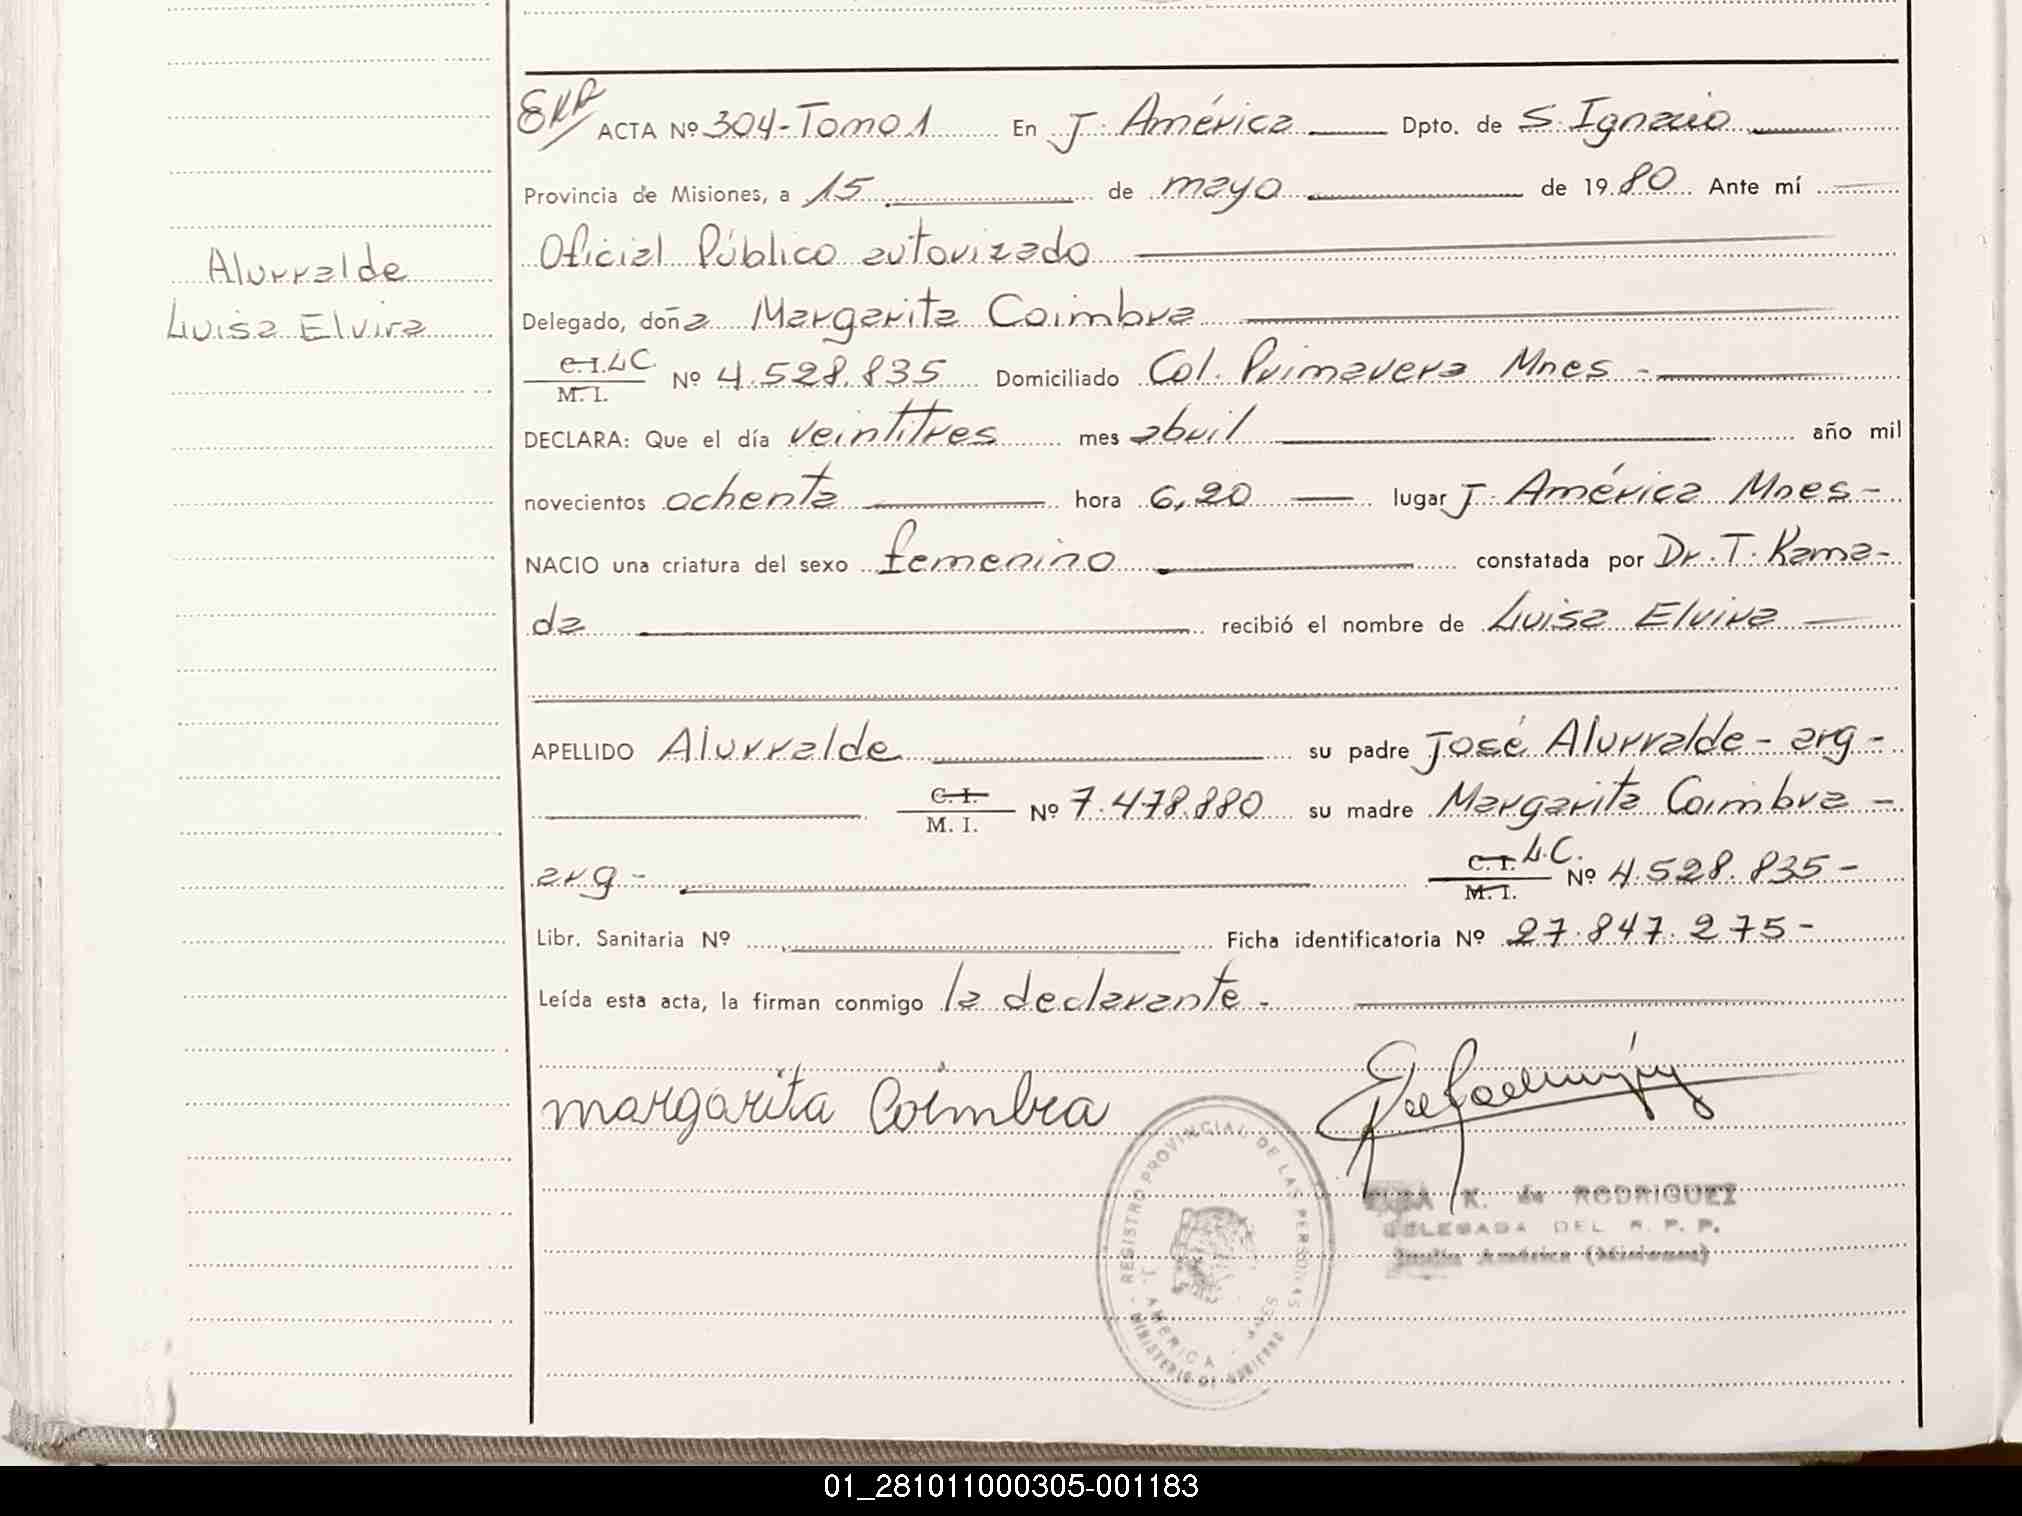 ERR
ACTA Nº 304-Tomo 1 En J. América Dpto. de S. Ignacio
Provincia de Misiones, a 15 de mayo de 1980 Ante mí
Oficial Público autorizado
Alurralde
Luisa Elvira
Delegado, doña Margarita Coimbra
C.I. LC.
M. I.
Nº 4.528.835 Domiciliado Col. Primavera Mnes -
DECLARA: Que el día veintitres mes abril año mil
novecientos ochenta hora 6,20 lugar J. América Mnes -
NACIO una criatura del sexo femenino constatada por Dr. T. Kama-
da recibió el nombre de Luisa Elvira
APELLIDO Alurralde su padre José Alurralde - arg -
C. I.
M. I.
Nº 7.478.880 su madre Margarita Coimbra -
arg -
C. I. L.C.
M. I.
Nº 4.528.835 -
Libr. Sanitaria Nº Ficha identificatoria Nº 27.847.275 -
Leída esta acta, la firman conmigo la declarante -
margarita Coimbra
K. de RODRIGUEZ
DELEGADA DEL R. P. P.
América (Misiones)
REGISTRO PROVINCIAL DE LAS PERSONAS
AMERICA - MNES
MINISTERIO DE GOBIERNO
01_281011000305-001183